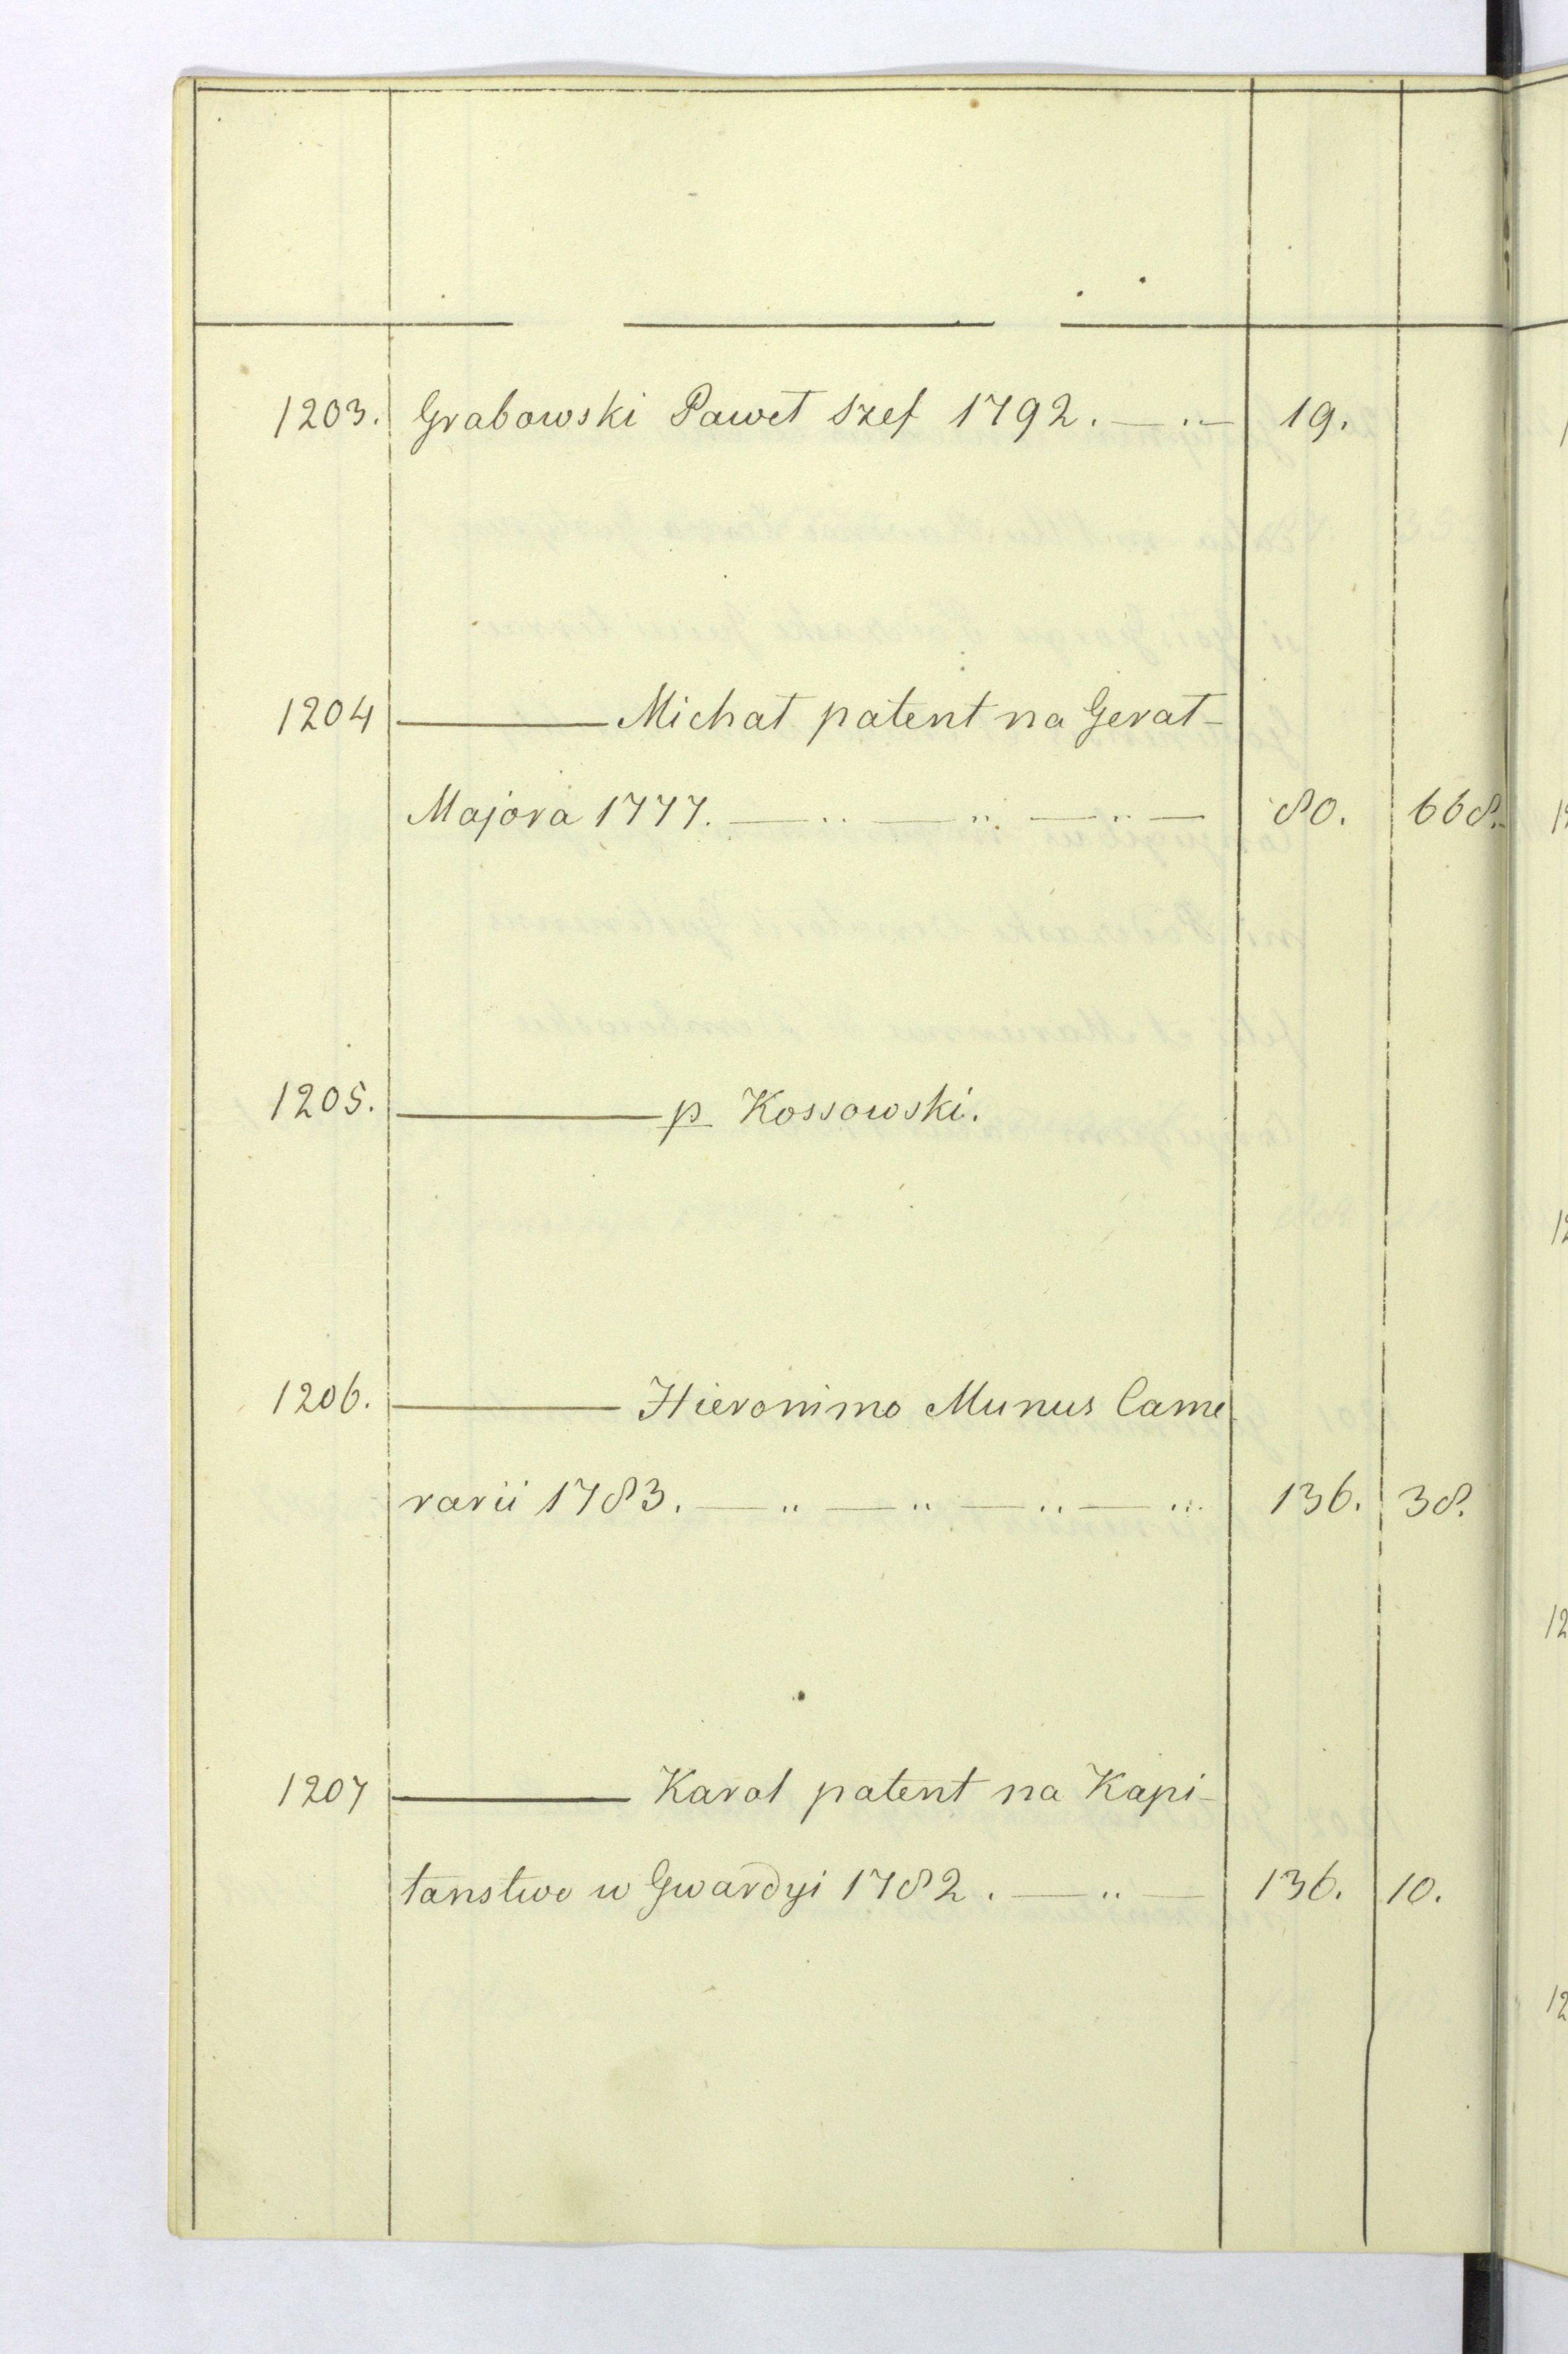 1203. Grabowski Paweł szef 1792. — .. — 19.
1204 ——— Michał patent na Gerał-
Majora 1777. — .. — .. — .. — 80. 668.
1205. ——— p Kossowski.
1206. ——— Hieronimo Munus Came
rarii 1783. — .. — .. — .. — .. 136. 38.
1207 ——— Karol patent na Kapi-
tanstwo w Gwardyi 1782. — .. — 136. 10.